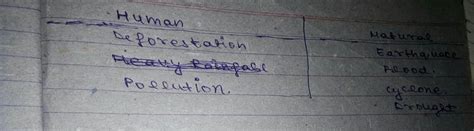 Human
Deforestation
Heavy Rainfall
Pollution.
Natural
Earthquace
Flood.
cyclone.
Drought